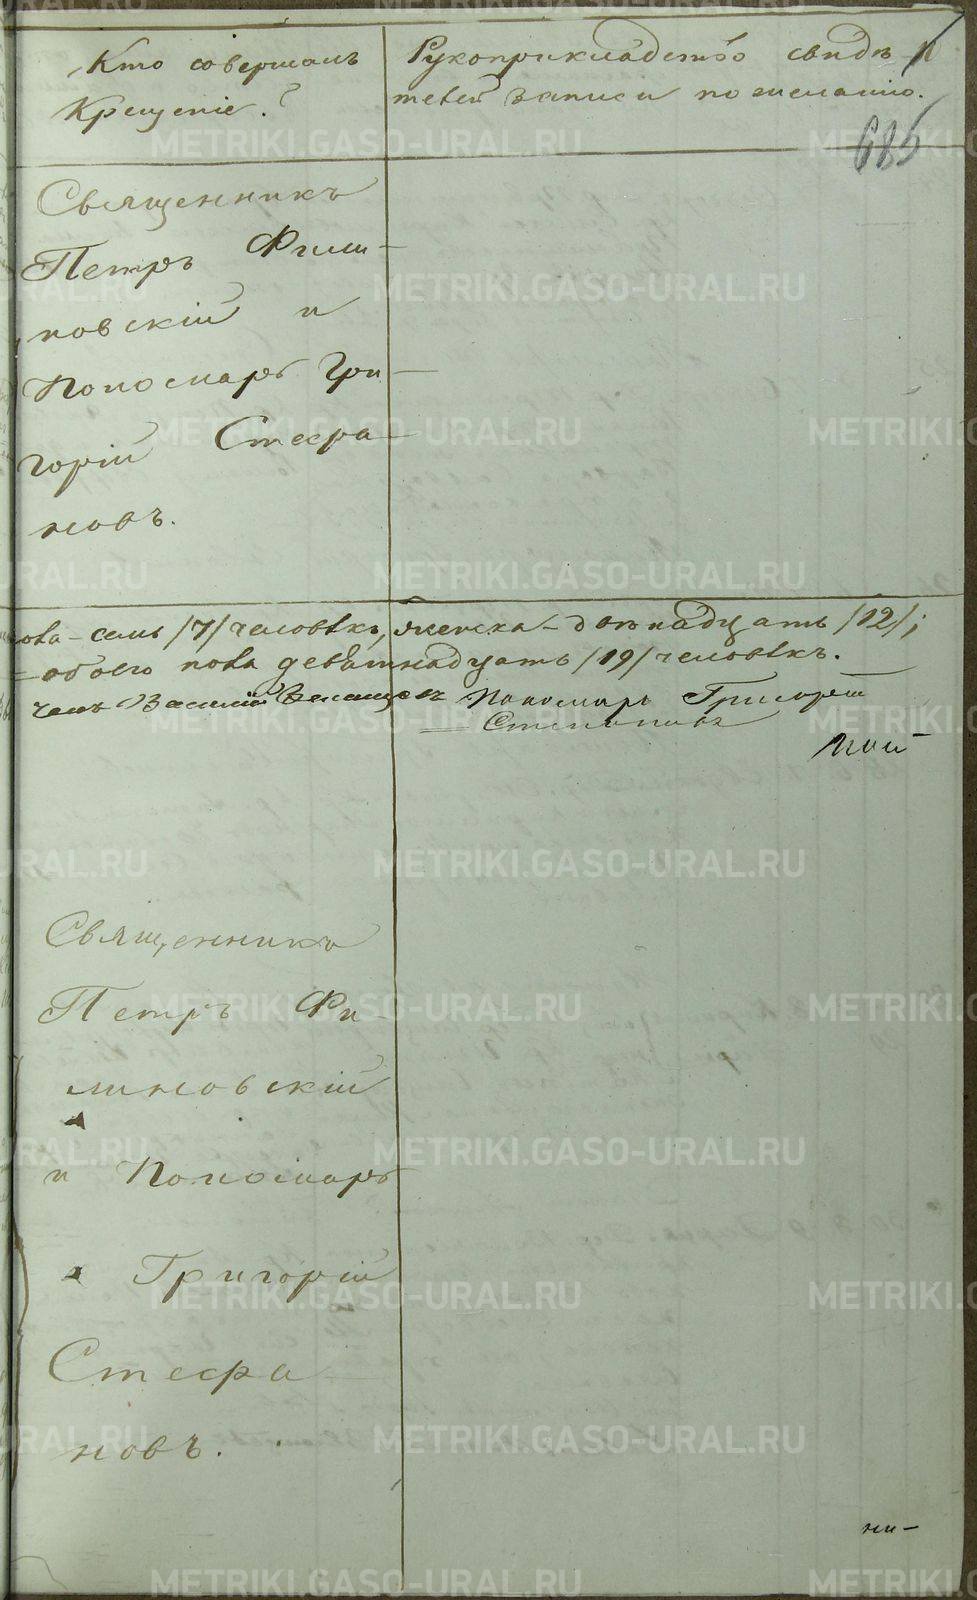 Кто совершалъ
Крещеніе?
Рукоприкладство свидѣ-
телей записи по желанію.
685
Священникъ
Петръ Фили-
повскій и
Пономарь Гри-
горій Стефа-
новъ.
пола - семь /7/ человѣкъ, женска - двѣнадцать /12/;
= обоего пола девятнадцать /19/ человѣкъ.
Василій Пономарь Григорій
Стефановъ
Священникъ
Петръ Фи-
липовскій
и Пономарь
Григорій
Стефа-
новъ.
ни-
METRIKI.GASO-URAL.RU